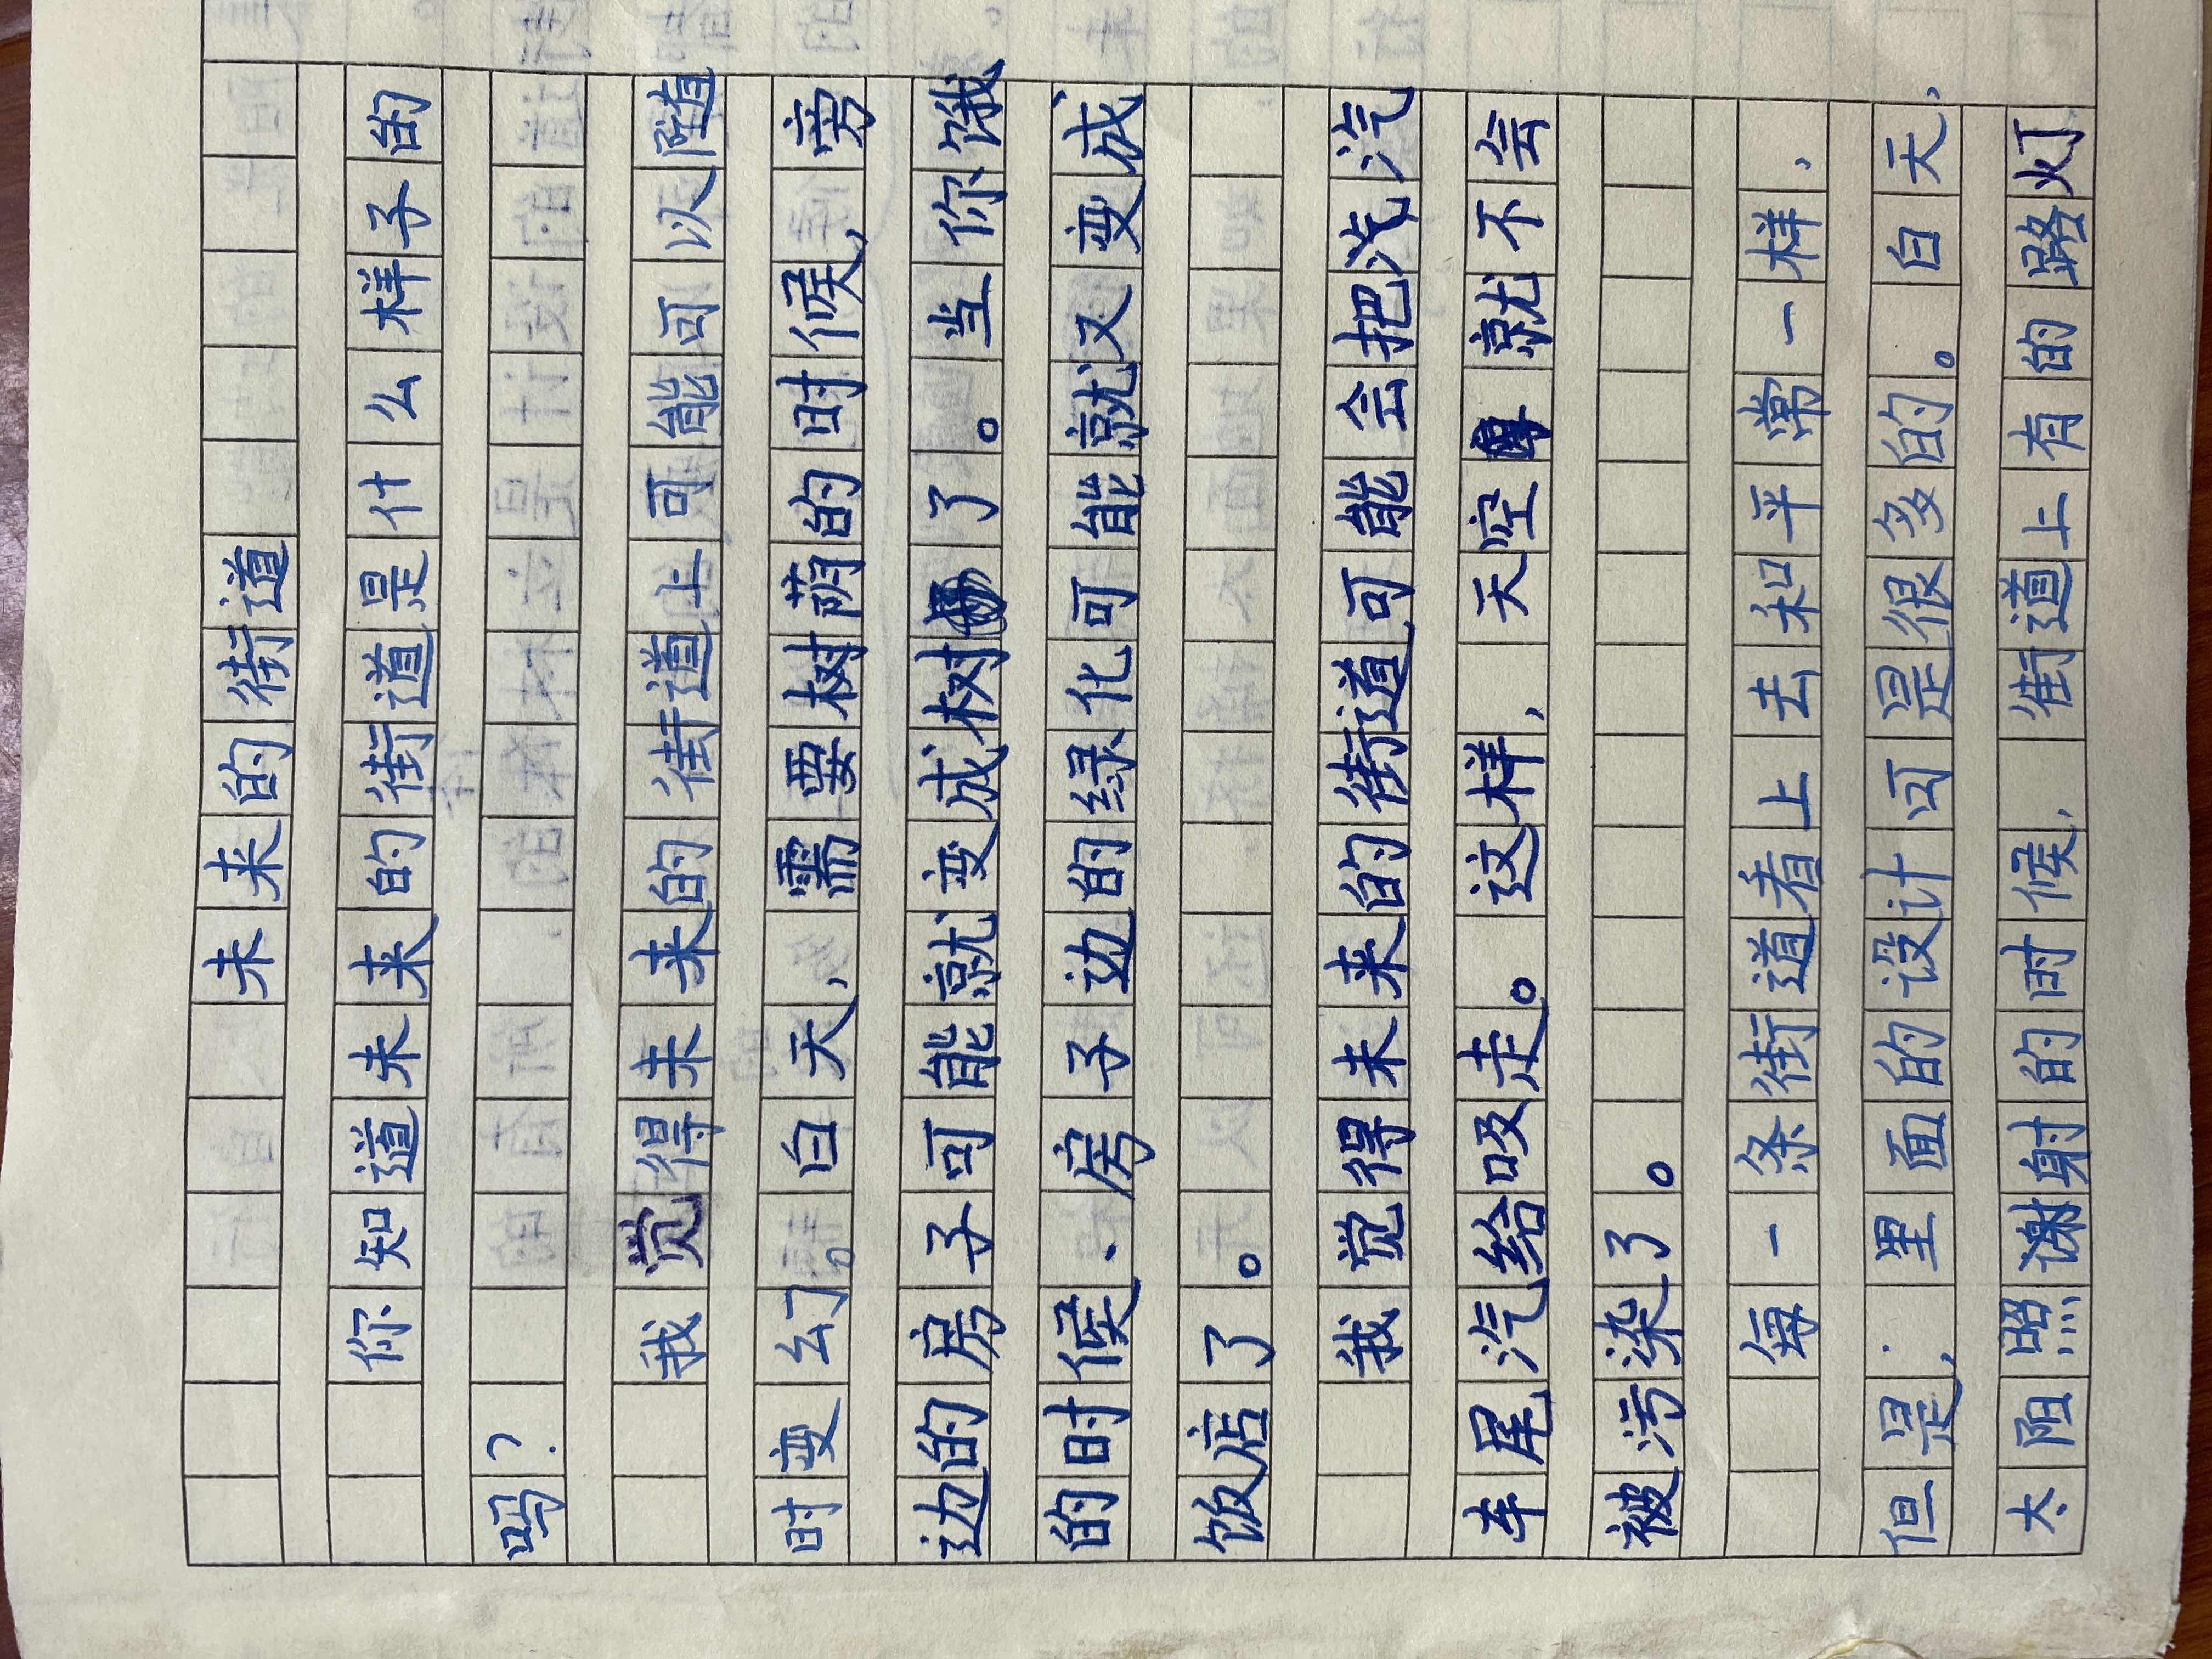 未来的街道
你知道未来的街道是什么样子的
吗?
我觉得未来的街道上可能可以随
时变幻。白天,需要树荫的时候,旁
边的房子可能就变成树了。当你饿
的时候,房子边的绿化可能就又变成
饭店了。
我觉得未来的街道可能会把汽汽
车尾汽给吸走。这样,天空就不会
被污染了。
每一条街道看上去和平常一样,
但是,里面的设计可是很多的。白天,
太阳照谢射的时候,街道上有的路灯